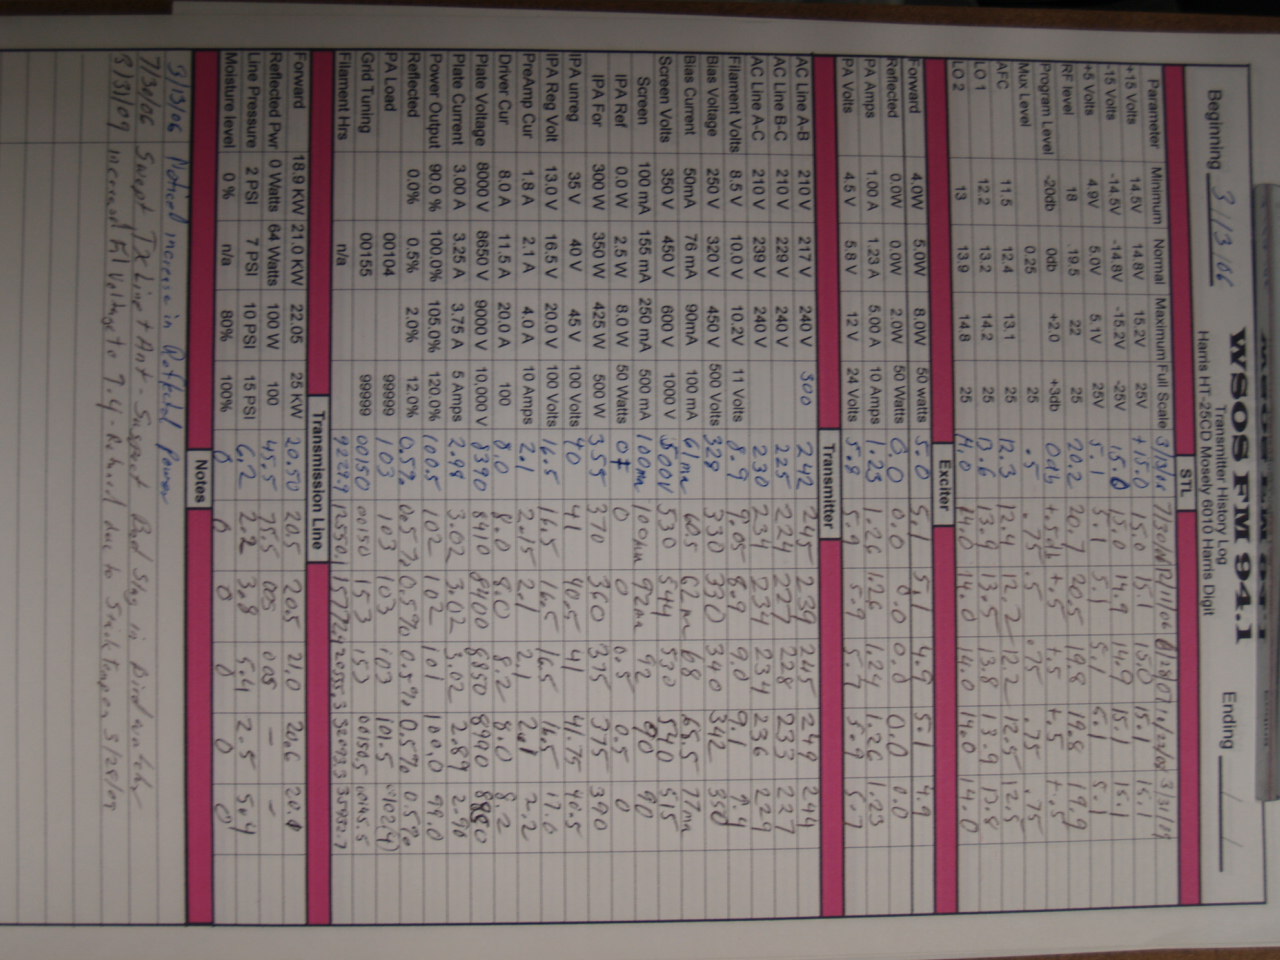 WSOS FM 94.1
Transmitter History Log
Harris HT-25CD Mosely 6010 Harris Digit
Beginning 3/13/06 Ending / /
STL
Parameter Minimum Normal Maximum Full Scale
+15 Volts 14.5V 14.8V 15.2V 25V +15.0 15.0 15.1 15.0 15.1 15.1
-15 Volts -14.5V -14.8V -15.2V -25V 15.0 15.0 14.9 14.9 15.1 15.1
+5 Volts 4.9V 5.0V 5.1V 25V 5.1 5.1 5.1 5.1 5.1 5.1
RF level 18 19.5 22 25 20.2 20.7 20.5 19.8 19.8 19.9
Program Level -20db 0db +2.0 +3db 0db +.5db +.5 +.5 +.5 +.5
Mux Level 0.25 25 .5 .75 .5 .75 .75 .75
AFC 11.5 12.4 13.1 25 12.3 12.4 12.2 12.2 12.5 12.5
LO 1 12.2 13.2 14.2 25 13.6 13.9 13.5 13.8 13.9 13.8
LO 2 13 13.9 14.8 25 14.0 14.0 14.0 14.0 14.0 14.0
Exciter
Forward 4.0W 5.0W 8.0W 50 watts 5.0 5.1 5.1 4.9 5.1 4.9
Reflected 0.0W 0.0W 2.0W 50 Watts 0.0 0.0 0.0 0.0 0.0 0.0
PA Amps 1.00 A 1.23 A 5.00 A 10 Amps 1.23 1.26 1.26 1.24 1.26 1.23
PA Volts 4.5 V 5.8 V 12 V 24 Volts 5.8 5.9 5.9 5.7 5.9 5.7
Transmitter
AC Line A-B 210 V 217 V 240 V 300 242 245 239 245 249 244
AC Line B-C 210 V 229 V 240 V 225 224 227 228 233 227
AC Line A-C 210 V 239 V 240 V 230 234 234 234 236 229
Filament Volts 8.5 V 10.0 V 10.2V 11 Volts 8.9 9.05 8.9 9.0 9.1 9.4
Bias Voltage 250 V 320 V 450 V 500 Volts 328 330 330 340 342 350
Bias Current 50mA 76 mA 90mA 100 mA 61ma 60.5 62ma 68 65.5 77ma
Screen Volts 350 V 450 V 600 V 1000 V 500V 530 544 530 540 515
Screen 100 mA 155 mA 250 mA 500 mA 100ma 100ma 92ma 92 90 90
IPA Ref 0.0 W 2.5 W 8.0 W 50 Watts 0 0 0.5 0.5 0
IPA For 300 W 350 W 425 W 500 W 355 370 360 375 375 390
IPA unreg 35 V 40 V 45 V 100 Volts 40 41 40.5 41 41.75 40.5
IPA Reg Volt 13.0 V 16.5 V 20.0 V 100 Volts 16.5 16.5 16.5 16.5 16.5 17.0
PreAmp Cur 1.8 A 2.1 A 4.0 A 10 Amps 2.1 2.15 2.1 2.1 2.1 2.2
Driver Cur 8.0 A 11.5 A 20.0 A 100 8.0 8.0 8.0 8.2 8.0 8.2
Plate Voltage 8000 V 8650 V 9000 V 10,000 V 8390 8410 8400 8850 8990 8880
Plate Current 3.00 A 3.25 A 3.75 A 5 Amps 2.98 3.02 3.02 3.02 2.89 2.90
Power Output 90.0 % 100.0% 105.0% 120.0% 100.5 102 102 101 100.0 99.0
Reflected 0.0% 0.5% 2.0% 12.0% 0.5% 0.5% 0.5% 0.5% 0.5% 0.5%
PA Load 00104 99999 103 103 103 103 101.5
Grid Tuning 00155 99999 00150 00150 153 153 00150.5 00145.5
Filament Hrs n/a
Transmission Line
Forward 18.9 KW 21.0 KW 22.05 25 KW 20.50 20.5 20.5 21.0 20.6 20.1
Reflected Pwr 0 Watts 64 Watts 100 W 100 45.5 75.5 - -
Line Pressure 2 PSI 7 PSI 10 PSI 15 PSI 6.2 2.2 3.8 5.4 2.5 5.4
Moisture level 0 % n/a 80% 100% 0 0 0 0 0 0
Notes
Noticed increase in Reflected Power
7/30/06 Swept Tx Line + Ant - Suspect Bad slug in Bird
3/31/09 increased Fil Voltage to 9.4 - due to 3/28/09